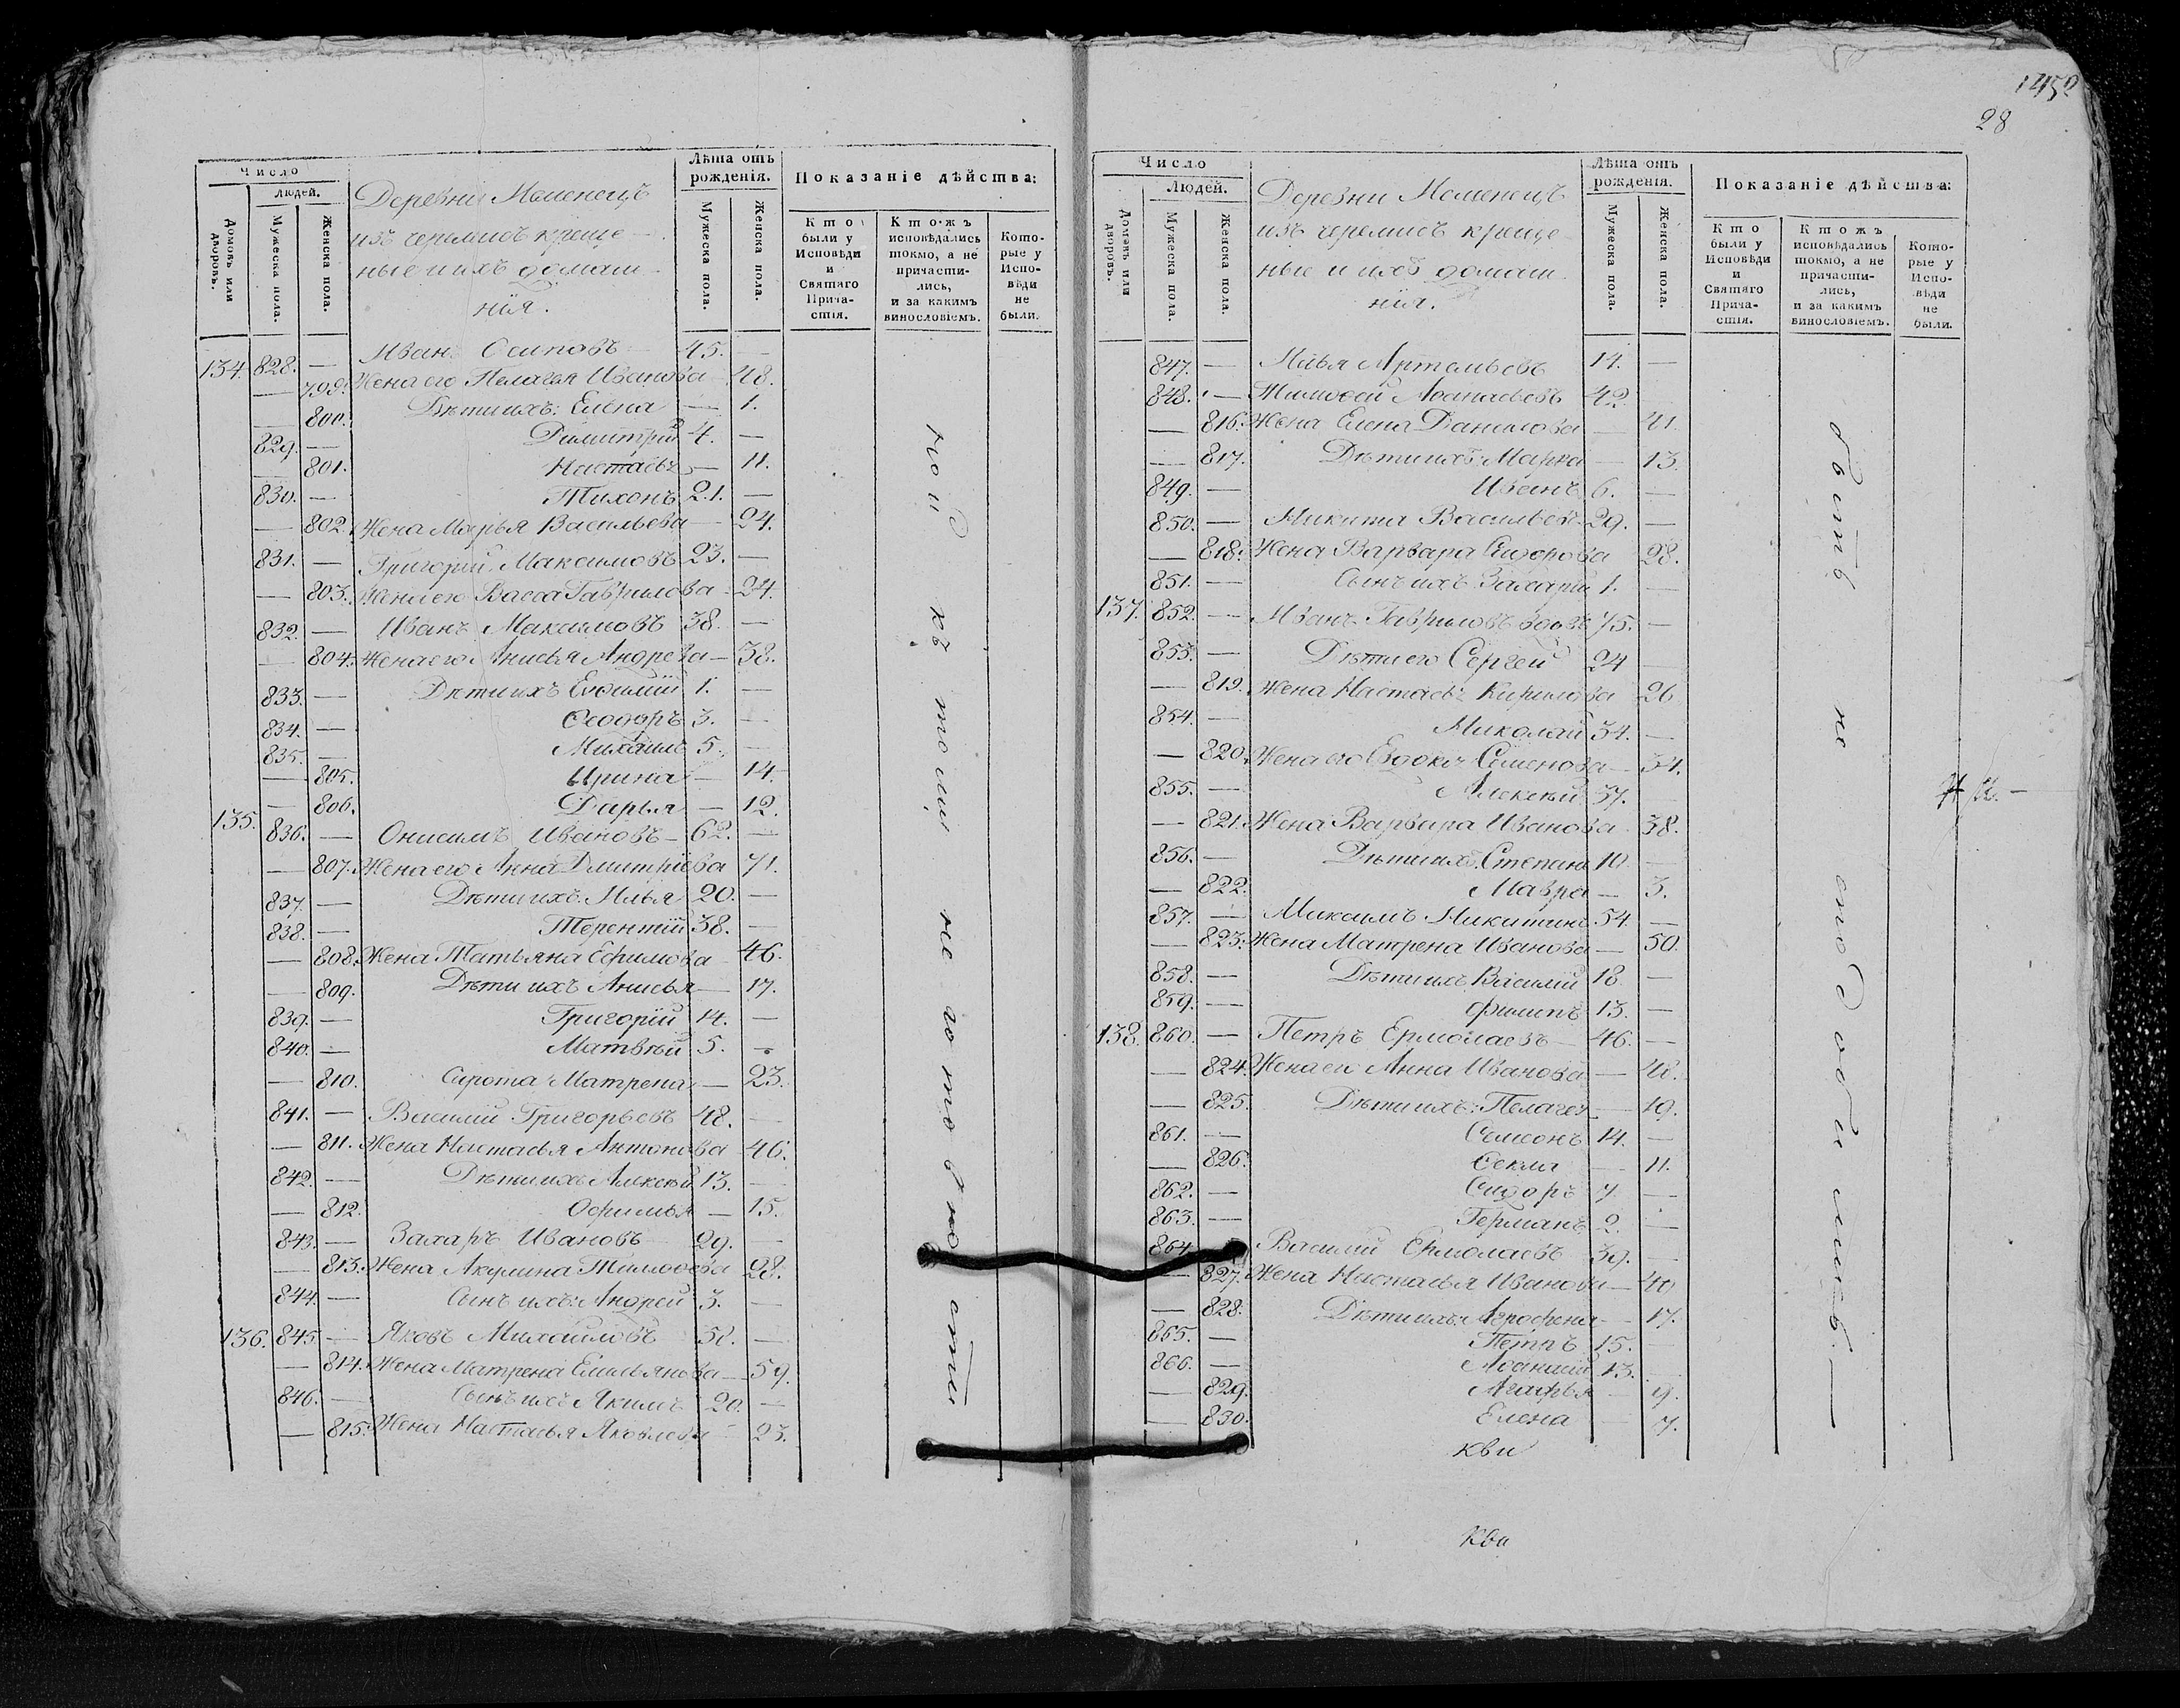 1452
28
Число
Людей.
Домовъ или дворовъ.
Мужеска пола.
Женска пола.
Деревни Моменецъ
изъ черемисъ креще-
ные и ихъ домаш-
нія.
Лѣта отъ рожденія.
Мужеска пола.
Женска пола.
Показаніе дѣйства:
Кто были у Исповѣди и Святаго Прича-стія.
Кто-жъ исповѣдались токмо, а не причасти-лись, и за какимъ винословіемъ.
Кото-рые у Испо-вѣди не были.
134. 828. — Иванъ Осиповъ — 45. —
— 799. Жена его Пелагея Иванова — 48.
— 800. Дѣти ихъ: Елена — 1.
829. — Димитрій 4. —
— 801. Настасья — 11.
830. — Тихонъ 21. —
— 802. Жена Марья Васильева — 24.
831. — Григорій Максимовъ 23. —
— 803. Жена его Васса Гаврилова — 24.
832. — Иванъ Максимовъ 38. —
— 804. Жена его Анисья Андрева — 38.
833. — Дѣти ихъ Евфимій 1. —
834. — Ѳеодоръ 3. —
835. — Михаилъ 5. —
— 805. Ирина — 14.
— 806. Дарья — 12.
135. 836. — Онисимъ Ивановъ — 62. —
— 807. Жена его Анна Дмитріева 71.
837. — Дѣти ихъ Илья 20. —
838. — Терентій 38. —
— 808. Жена Татьяна Ефимова 46.
— 809. Дѣти ихъ Анисья — 17.
839. — Григорій 14. —
840. — Матвѣй 5. —
— 810. Сирота Матрена — 23.
841. — Василий Григорьевъ 48. —
— 811. Жена Настасья Антонова 46.
842. — Дѣти ихъ Алексѣй 13. —
— 812. Офимья — 15.
843. — Захаръ Ивановъ 29. —
— 813. Жена Акулина Тимоѳева 28.
844. — Сынъ ихъ: Андрей 3. —
136. 845. — Яковъ Михайловъ 58. —
— 814. Жена Матрена Емельянова — 59.
846. — Сынъ ихъ Якимъ 20. —
— 815. Жена Настасья Яковлева — 23.
по и къ тому же готовности
Число
Людей.
Домовъ или дворовъ.
Мужеска пола.
Женска пола.
Деревни Моменецъ
изъ черемисъ креще-
ные и ихъ домаш-
нія.
Лѣта отъ рожденія.
Мужеска пола.
Женска пола.
Показаніе дѣйства:
Кто были у Исповѣди и Святаго Прича-стія.
Кто жъ исповѣдались токмо, а не причасти-лись, и за какимъ винословіемъ.
Кото-рые у Испо-вѣди не были.
847. — Илья Артемьевъ 14. —
848. — Тимоѳей Аѳанасьевъ 42. —
— 816. Жена Елена Данилова — 41.
— 817. Дѣти ихъ: Марѳа — 13.
849. — Иванъ 6. —
850. — Микита Васильевъ 29. —
— 818. Жена Варвара Сидорова 28.
851. — Сынъ ихъ Захарій 1. —
137. 852. — Иванъ Гавриловъ вдовъ 75. —
853. — Дѣти его Сергей 24 —
— 819. Жена Настасья Кирилова 26
854. — Миколай 34. —
— 820. Жена его Евдокія Семенова — 34.
855. — Алексѣй 37. —
— 821. Жена Варвара Иванова 38.
856. — Дѣти ихъ: Степанъ 10 —
— 822. Мавра — 3.
857. — Максимъ Никитинъ 54. —
— 823. Жена Матрена Иванова — 50.
858. — Дѣти ихъ Василій 18. —
859. — Филипъ 13. —
138. 860. — Петръ Ермолаевъ — 46. —
— 824. Жена его Анна Иванова — 48.
— 825. Дѣти ихъ: Пелагея — 19.
861. — Семеонъ 14. —
— 826. Ѳекла — 11.
862. — Сидоръ 7. —
863. — Германъ 2. —
864. Василій Ермолаевъ 39. —
— 827. Жена Настасья Иванова — 40
— 828. Дѣти ихъ: Агрофена — 17.
865. — Петръ 15. —
866. — Аѳанасій 13. —
— 829. Агафья — 9.
— 830. Елена — 7.
кви
быть не сподобились. —
Кви